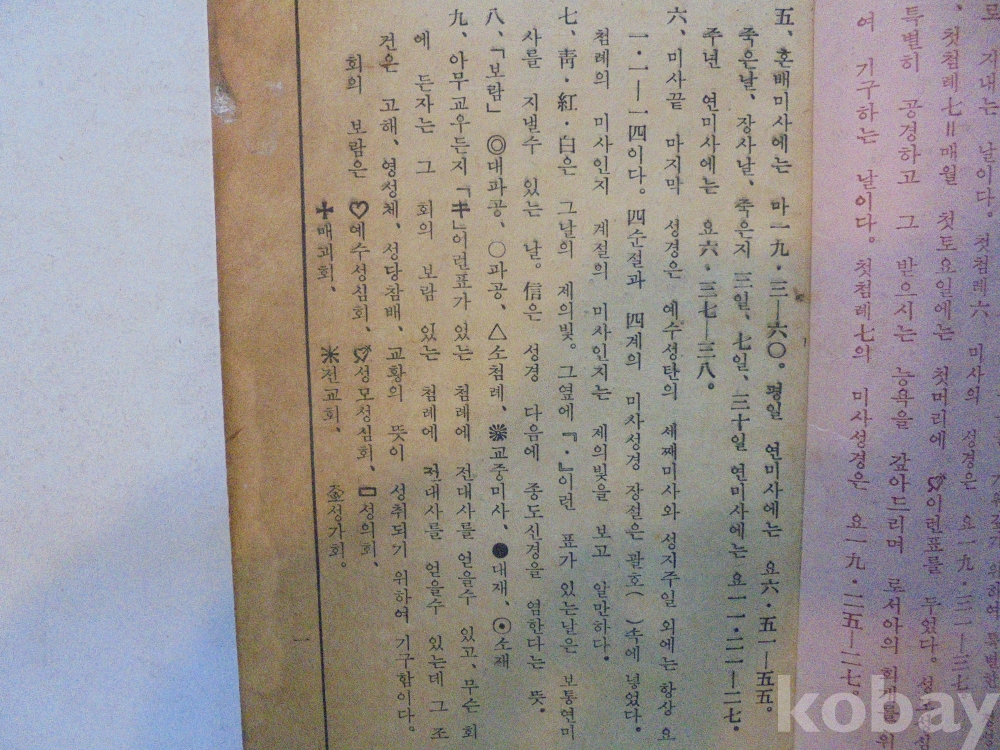 로 지내는 날이다. 첫첨례六 미사의 성경은 요一九·三一—三七
、첫첨례七=매월 첫토요일에는 첫머리에 이런표를 두었다.
특별히 공경하고 그 받으시는 능욕을 갚아드리며 로서아의 회개를 위
여 기구하는 날이다. 첫첨례七의 미사성경은 요一九·二五—二七.
五、혼배미사에는 마一九·三—六〇. 평일 연미사에는 요六·五一—五五.
죽은날、장사날、죽은지 三일、七일、三十일 연미사에는 요一一·二一—二七.
주년 연미사에는 요六·三七—三八.
六、미사끝 마지막 성경은 예수성탄의 세째미사와 성지주일 외에는 항상 요
一·一—一四이다. 四순절과 四계의 미사성경 장절은 괄호( )속에 넣었다.
첨례의 미사인지 계절의 미사인지는 제의빛을 보고 알만하다.
七、靑·紅·白은 그날의 제의빛. 그옆에『·』이런 표가 있는날은 보통연미
사를 지낼수 있는 날. 信은 성경 다음에 종도신경을 염한다는 뜻.
八、「보람」 ◎대파공、○파공、△소첨례、❋교중미사、●대재、⊙소재
九、아무교우든지「キ」이런표가 있는 첨례에 전대사를 얻을수 있고、무슨 회
에 든자는 그 회의 보람 있는 첨례에 전대사를 얻을수 있는데 그 조
건은 고해、영성체、성당참배、교황의 뜻이 성취되기 위하여 기구함이다.
회의 보람은 ♡예수성심회、성모성심회、▭성의회、
✚매괴회、 ✳전교회、 성가회.
一
kobay